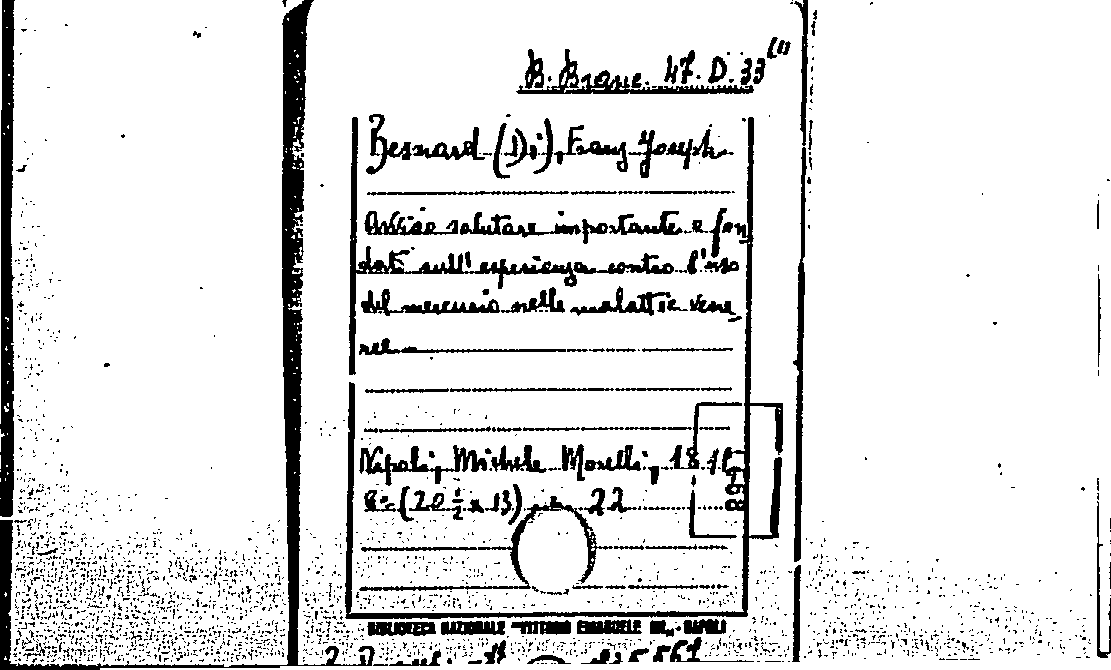 B. Branc. 47. D. 33 (1)
Bernard (Di), Franz Joseph
Avviso salutare importante e fon
dato sull'esperienza contro l'uso
del mercurio nelle malattie vene
ree
Napoli, Michele Morelli, 18
8º (20 ½ x 13) p. 22
BIBLIOTECA NAZIONALE "VITTORIO EMANUELE III" - NAPOLI